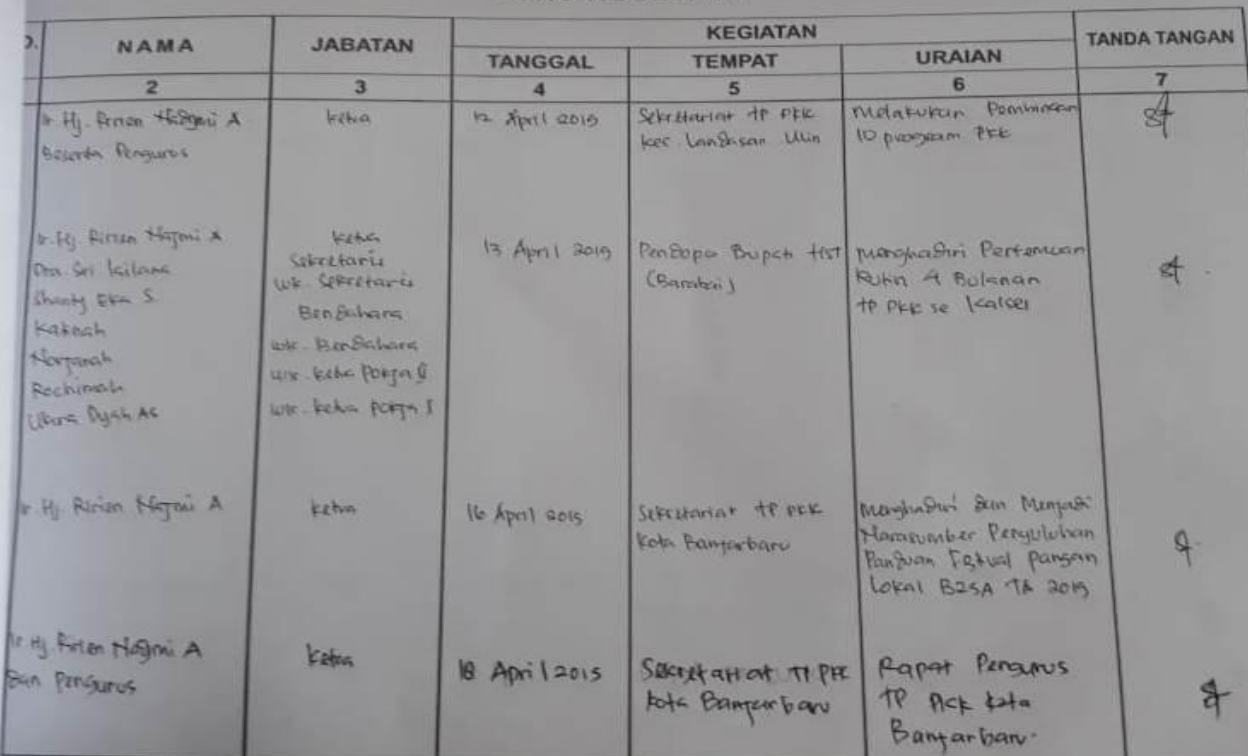 NAMA
JABATAN
KEGIATAN
TANGGAL
TEMPAT
URAIAN
TANDA TANGAN
2
3
4
5
6
7
Ir. Hj. Ririen Nadjmi A
Beserta Pengurus
Ketua
12 April 2019
Sekretariat TP PKK
Kec. Landasan Ulin
Melakukan Pembinaan
10 program PKK
Ir. Hj. Ririen Najmi A
Dra. Sri
Shanty Eka S.
Norjanah
Rochimah
Dyah As
Ketua
Sekretaris
Wk. Sekretaris
Bendahara
Wk. Bendahara
Wk. Ketua Pokja
Wk. Ketua Pokja I
13 April 2019
Pendopo Bupati HST
(Barabai)
Menghadiri Pertemuan
Rutin 4 Bulanan
TP PKK se Kalsel
Ir. Hj. Ririen Najmi A
Ketua
16 April 2019
Sekretariat TP PKK
Kota Banjarbaru
Menghadiri dan Menjadi
Narasumber Penyuluhan
Panduan Festival Pangan
Lokal B2SA TA 2019
Ir Hj. Ririen Nadjmi A
dan Pengurus
Ketua
18 April 2019
Sekretariat TP PKK
Kota Banjarbaru
Rapat Pengurus
TP PKK Kota
Banjarbaru.